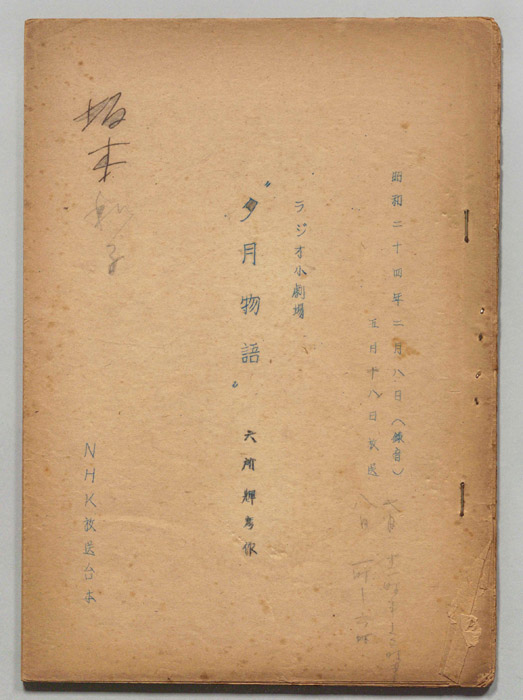 昭和二十四年二月八日(錄音)
五月十八日放送
ラジオ小劇場
"夕月物語"
六所輝彥作
NHK放送台本
坂本